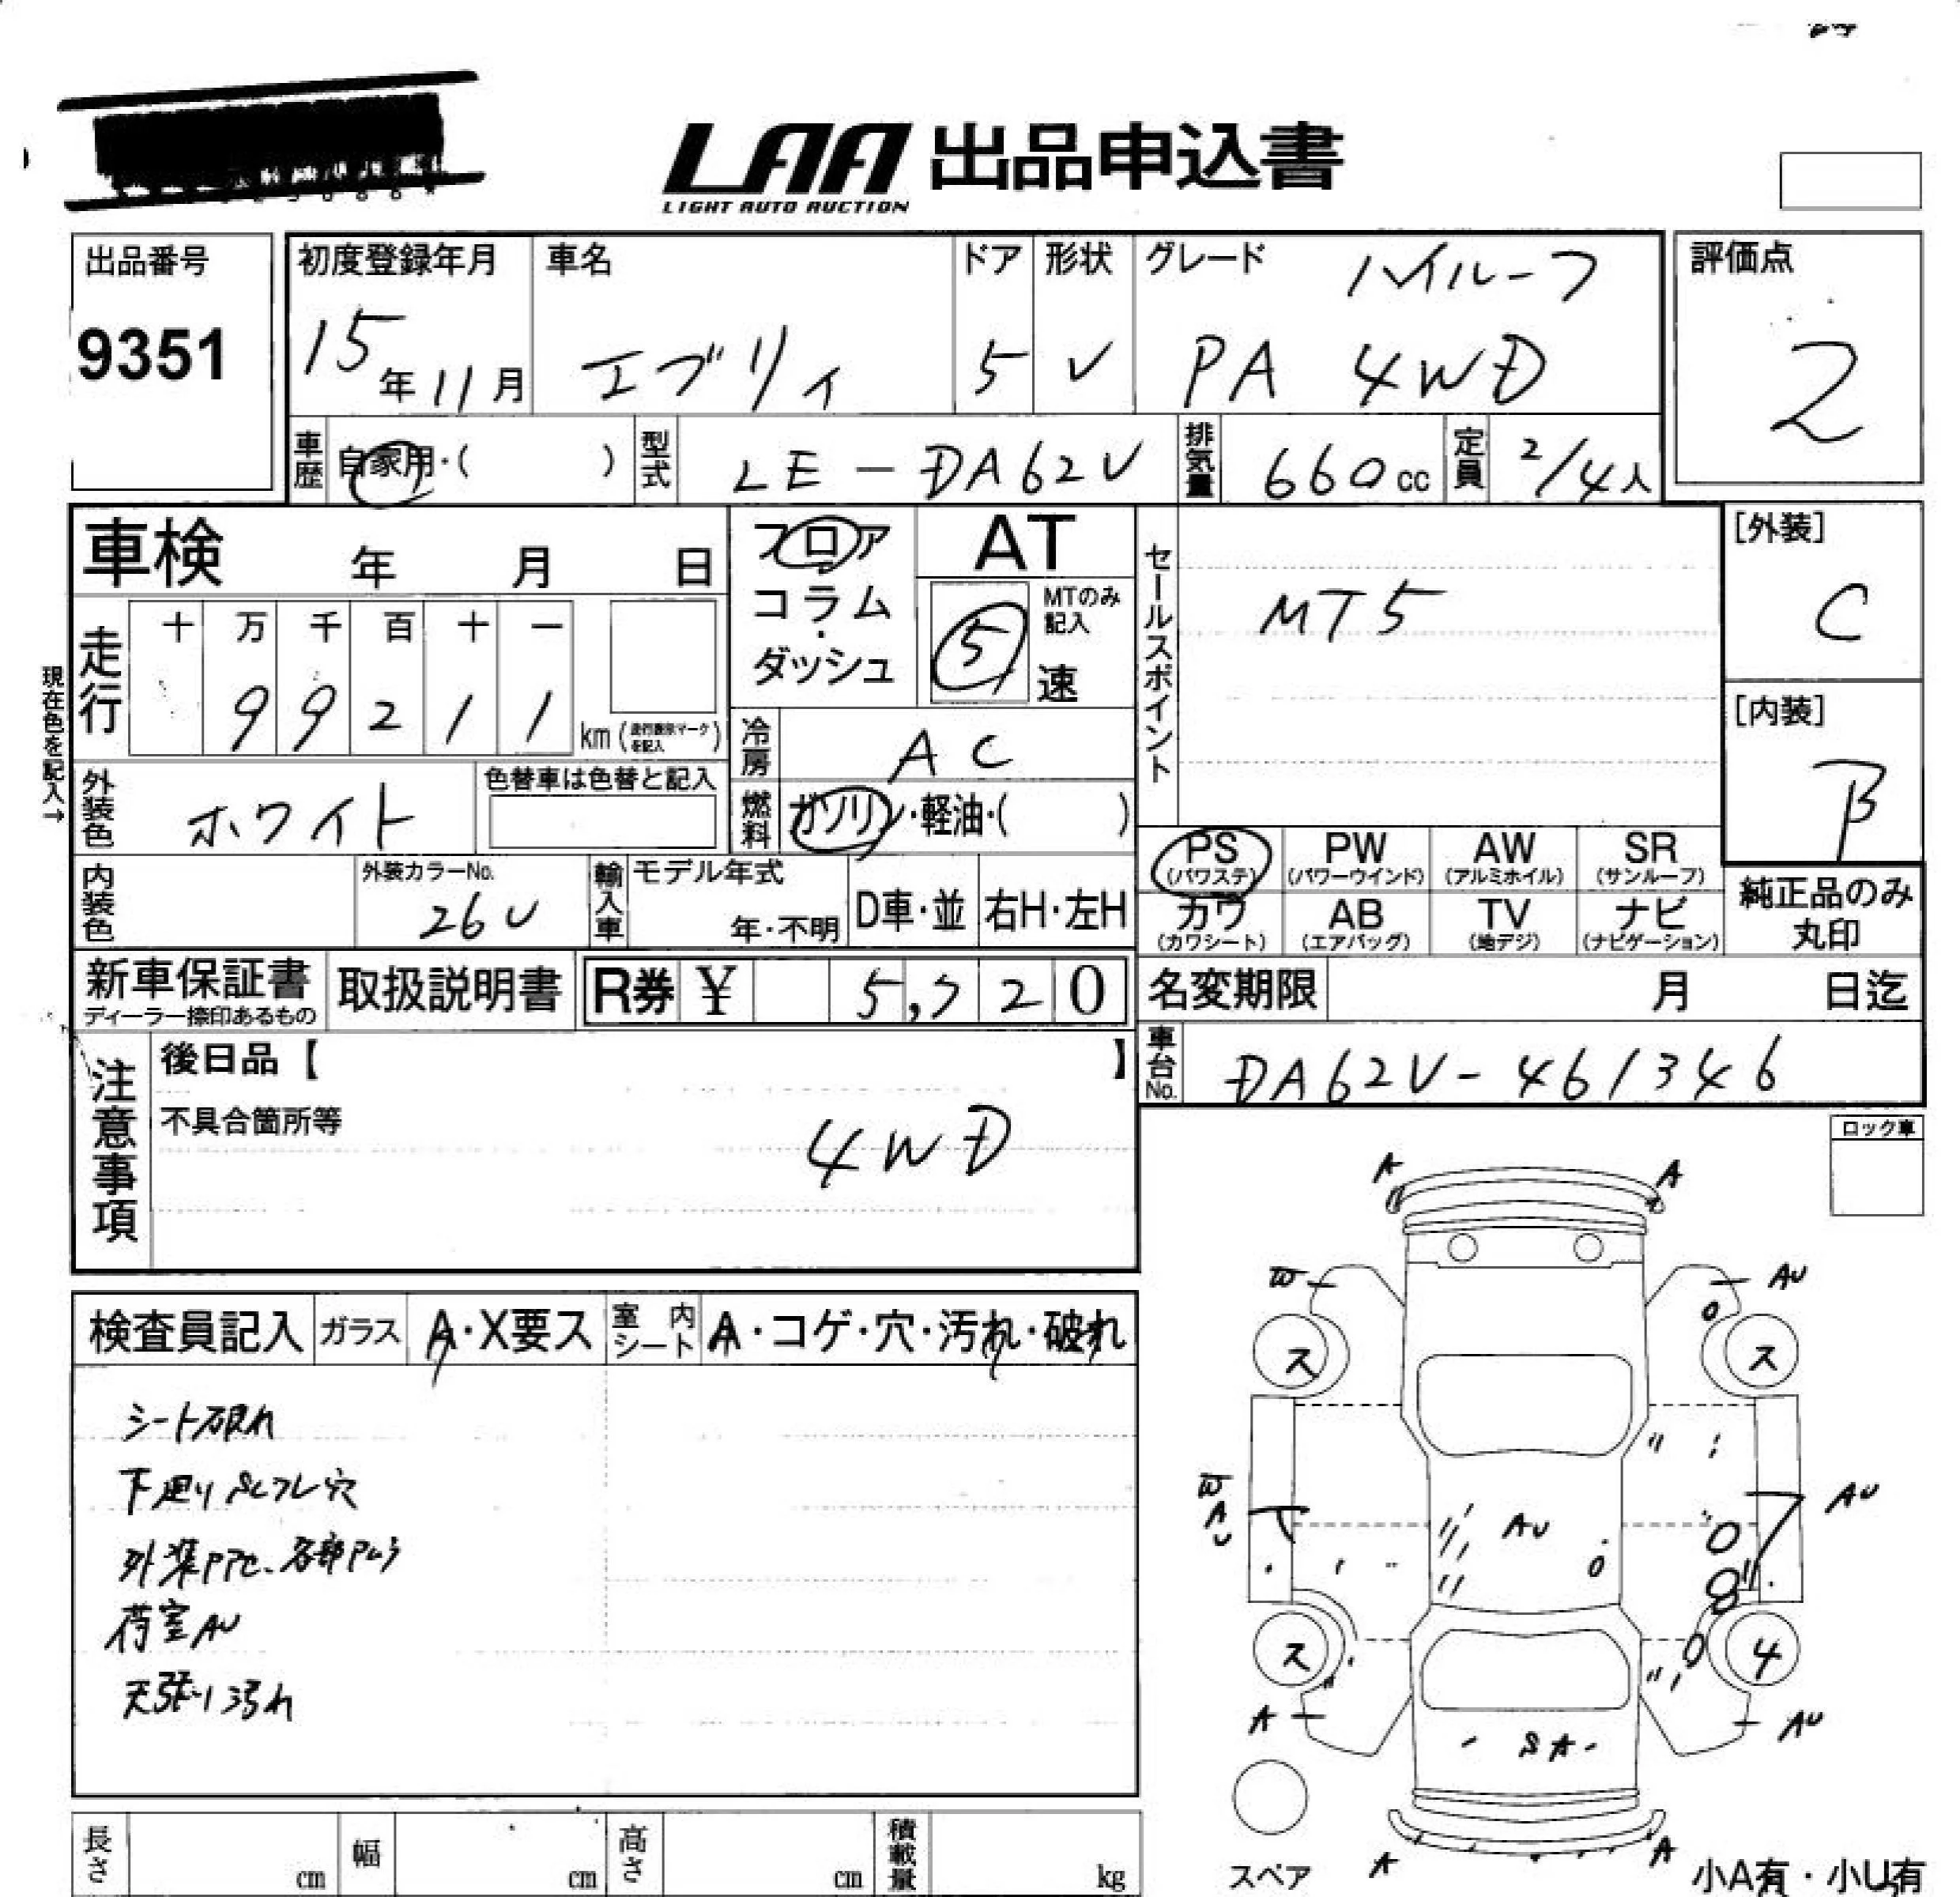 LAA 出品申込書
LIGHT AUTO AUCTION
出品番号
9351
初度登録年月
15年11月
車名
エブリィ
ドア
5
形状
V
グレード
ハイルーフ
PA 4WD
評価点
2
車歴 自家用・( )
型式 LE-DA62V
排気量 660cc
定員 2/4人
車検 年 月 日
フロア
コラム
・
ダッシュ
AT
MTのみ記入
5速
セールスポイント
MT5
[外装]
C
[内装]
B
現在色を記入→
走行
十 万 千 百 十 一
9 9 2 1 1 km(走行数値マークを記入)
冷房 AC
外装色 ホワイト
色替車は色替と記入
燃料 ガソリン・軽油・( )
PS (パワステ)
PW (パワーウインド)
AW (アルミホイル)
SR (サンルーフ)
カワ (カワシート)
AB (エアバッグ)
TV (地デジ)
ナビ (ナビゲーション)
純正品のみ
丸印
内装色
外装カラーNo.
26U
輸入車
モデル年式
年・不明
D車・並
右H・左H
新車保証書
ディーラー捺印あるもの
取扱説明書
R券 ¥ 5,720
名変期限 月 日迄
車台No. DA62V-461346
注意事項
後日品【 】
不具合箇所等
4WD
ロック車
検査員記入
ガラス A・X要ス
室内シート A・コゲ・穴・汚れ・破れ
シート破れ
下廻りSCフレ穴
荷室AU
天張り汚れ
A A
W AU
ス ス
W
AU AU AU
ス 4
A AU
SA
A A
スペア
小A有・小U有
長さ cm
幅 cm
高さ cm
積載量 kg